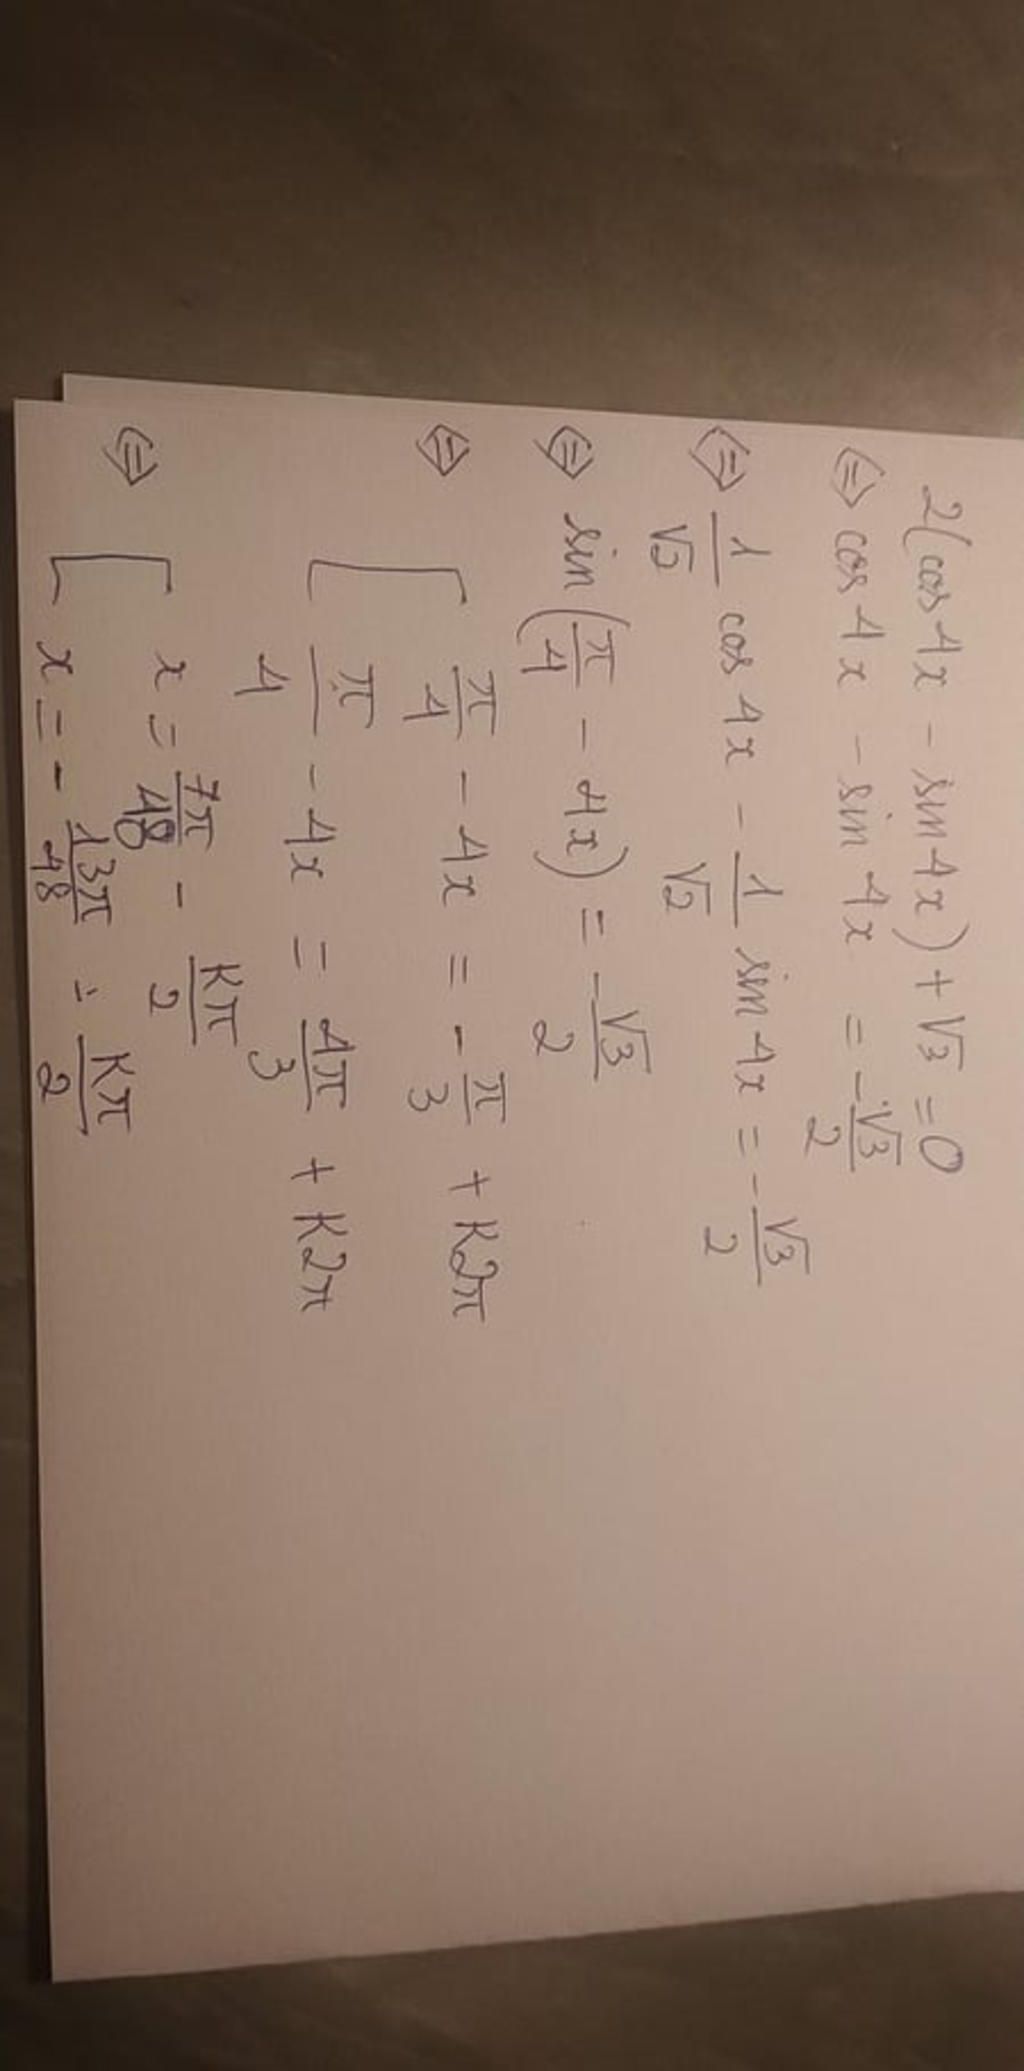 2(cos 4x - sin 4x) + √3 = 0
⇔ cos 4x - sin 4x = -√3/2
⇔ 1/√2 cos 4x - 1/√2 sin 4x = -√3/2
⇔ sin (π/4 - 4x) = -√3/2
⇔ [ π/4 - 4x = -π/3 + k2π
π/4 - 4x = 4π/3 + k2π
⇔ [ x = 7π/48 - kπ/2
x = -13π/48 - kπ/2